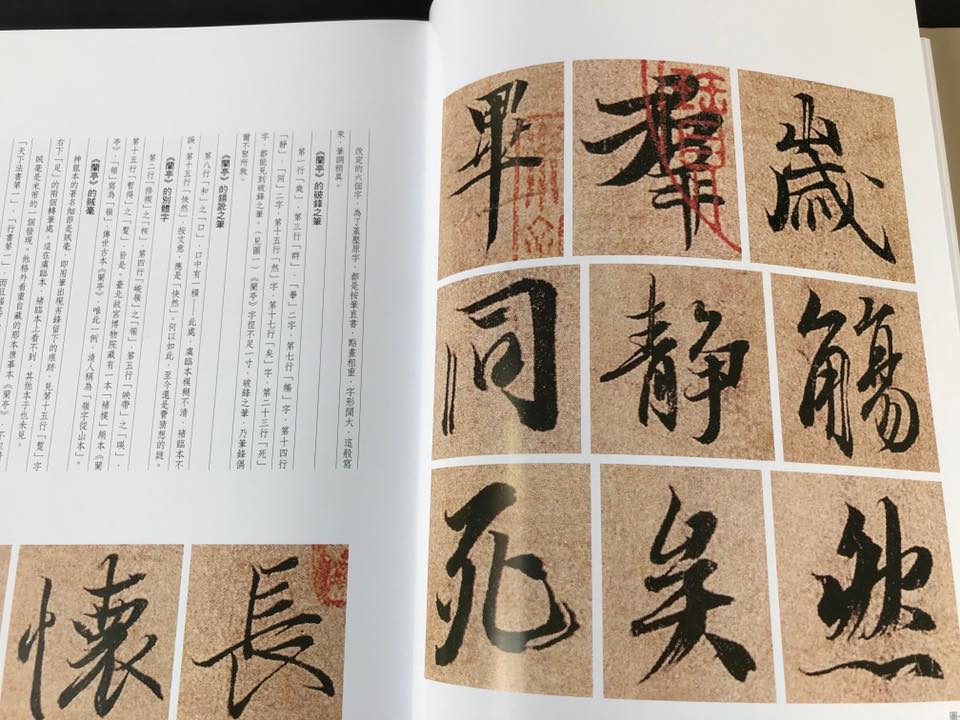 改定的六個字，為了蓋壓原字，都是按筆直書，點畫粗重，字形闊大，這般寫
來，筆調稍異。
《蘭亭》的破鋒之筆
第一行「歲」，第三行「群」、「畢」二字，第七行「觴」字，第十四行
「靜」、「同」二字，第十五行「然」字，第十七行「矣」字，第二十三行「死」
字，都能見到破鋒之筆。（見圖一）《蘭亭》字徑不足一寸，破鋒之筆，乃筆鋒偶
爾不聚所致。
《蘭亭》的錯訛之筆
第八行「和」之「口」，口中有一橫，此處，虞臨本模糊不清，褚臨本不
誤。第十五行「怏然」，按文意，應是「快然」。何以如此，至今還是費猜想的謎。
《蘭亭》的別體字
第二行「脩稧」之「稧」，第四行「峻領」之「領」，第五行「暎帶」之「暎」，
第十五行「蹔得」之「蹔」，皆是。臺北故宮博物院藏有一本「褚模」領本《蘭
亭》，「領」寫為「嶺」，傳世古本《蘭亭》，唯此一例，清人稱為「嶺字從山本」。
《蘭亭》的賊毫
神龍本的著名細節是賊毫，即用筆出現劣鋒留下的痕跡，見第十五行「蹔」字
右下「足」的兩個轉筆處。這在虞臨本、褚臨本上看不到，其他本子也未見。
賊毫是米芾的一個發現。他格外看重自藏的那本唐摹本《蘭亭》，不
「天下法書第一」、「行書第一」，而且
歲羣畢
觴靜同
然矣死
長懷